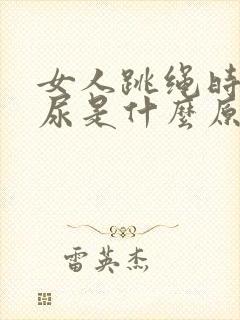 女人跳绳时
尿是什麼原
雷英杰